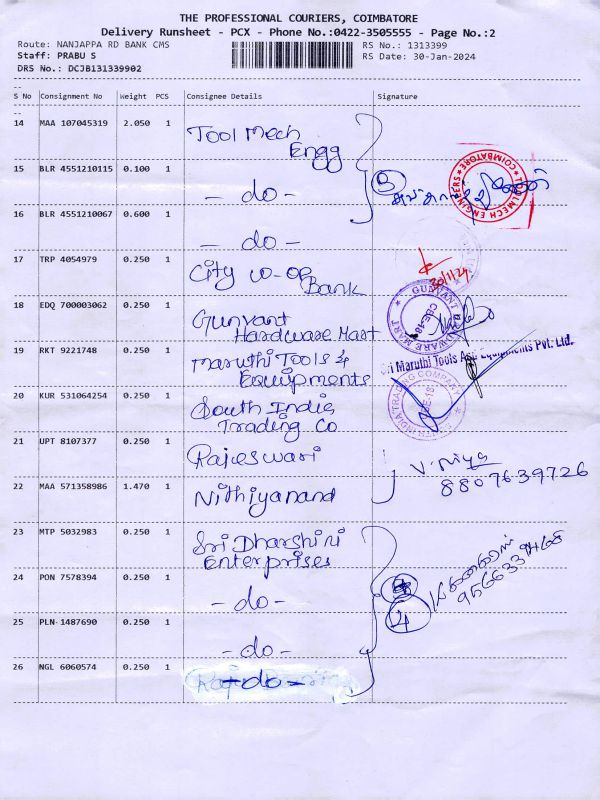 THE PROFESSIONAL COURIERS, COIMBATORE
Delivery Runsheet - PCX - Phone No.:0422-3505555 - Page No.:2
Route: NANJAPPA RD BANK CMS
RS No.: 1313399
Staff: PRABU S
RS Date: 30-Jan-2024
DRS No.: DCJB131339902
S No Consignment No Weight PCS Consignee Details Signature
14 MAA 107045319 2.050 1 Tool Mech
Engg
15 BLR 4551210115 0.100 1 - do - 3
TOOLMECH ENGINEERS COIMBATORE
16 BLR 4551210067 0.600 1 - do -
17 TRP 4054979 0.250 1 City co-op
Bank
30/1/24
18 EDQ 700003062 0.250 1 Gunvant
Hardware Mart
GUNVANT HARDWARE MART CBE-18
19 RKT 9221748 0.250 1 Maruthi Tools &
Equipments
Sri Maruthi Tools And Equipments Pvt. Ltd.
20 KUR 531064254 0.250 1 South India
Trading Co
SOUTH INDIA TRADING COMPANY CBE-18
21 UPT 8107377 0.250 1 Rajeswari
V. Priya
8807639726
22 MAA 571358986 1.470 1 Nithiyanand
23 MTP 5032983 0.250 1 Sri Dharshini
Enterprises
24 PON 7578394 0.250 1 - do -
4
25 PLN 1487690 0.250 1 - do -
26 NGL 6060574 0.250 1 - do -